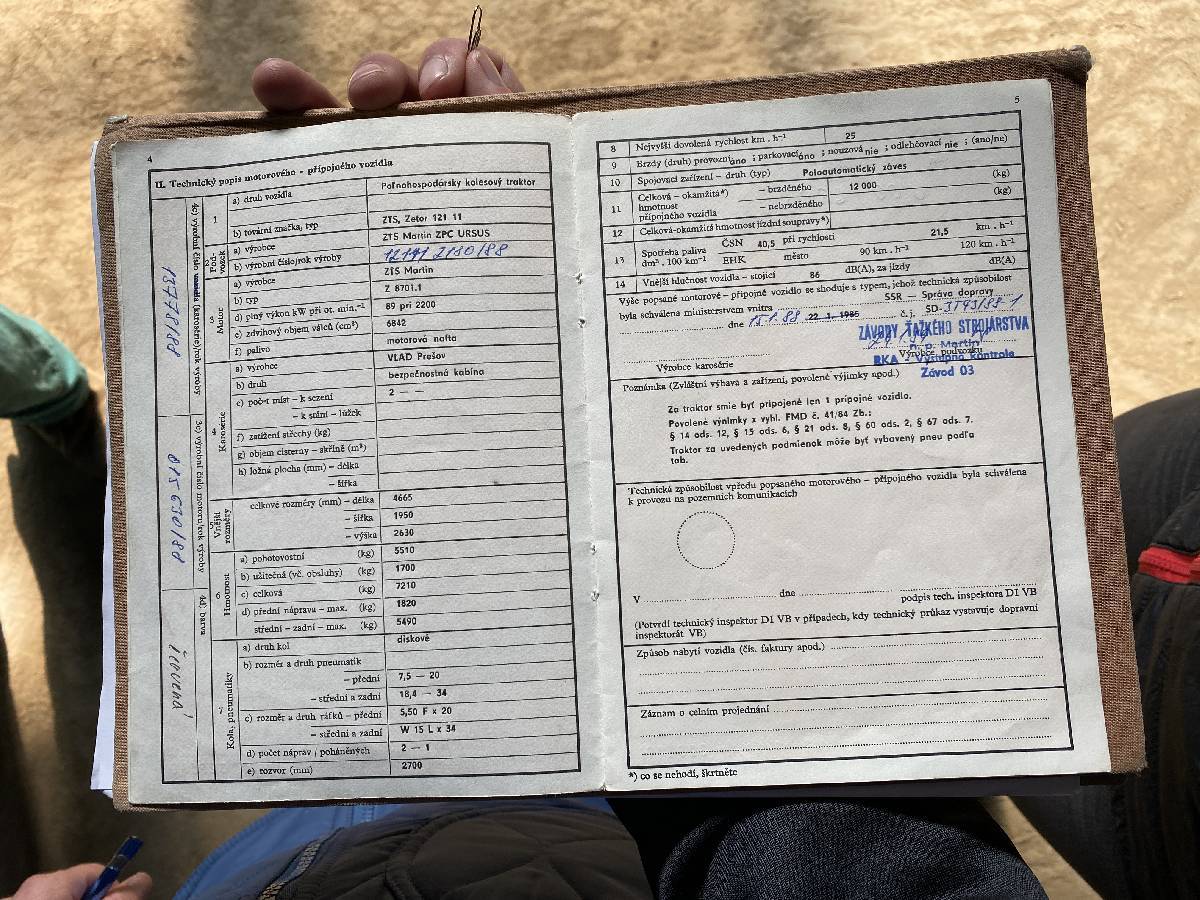 4
II. Technický popis motorového - přípojného vozidla
1
a) druh vozidla
Poľnohospodársky kolesový traktor
b) tovární značka, typ
ZTS, Zetor 121 11
2 Pod-vozek
a) výrobce
ZTS Martin ZPC URSUS
b) výrobní číslo/rok výroby
3 Motor
a) výrobce
ZTS Martin
b) typ
Z 8701.1
d) plný výkon kW při ot. min.⁻¹
89 pri 2200
e) zdvihový objem válců (cm³)
6842
f) palivo
motorová nafta
Karosérie
a) výrobce
VLAD Prešov
b) druh
bezpečnostná kabína
c) počet míst – k sezení
2 — —
– k stání – lůžek
f) zatížení střechy (kg)
g) objem cisterny – skříně (m³)
h) ložná plocha (mm) – délka
– šířka
5 Vnější rozměry
celkové rozměry (mm) – délka
4665
– šířka
1950
– výška
2630
6 Hmotnost
a) pohotovostní (kg)
5510
b) užitečná (vč. obsluhy) (kg)
1700
c) celková (kg)
7210
d) přední nápravu – max. (kg)
1820
střední – zadní – max. (kg)
5490
7 Kola, pneumatiky
a) druh kol
diskové
b) rozměr a druh pneumatik
– přední
7,5 — 20
– střední a zadní
18,4 — 34
c) rozměr a druh ráfků – přední
5,50 F x 20
– střední a zadní
W 15 L x 34
d) počet náprav, poháněných
2 — 1
e) rozvor (mm)
2700
3c) výrobní číslo motoru/rok výroby
4d) barva
červená
5
8 Nejvyšší dovolená rychlost km . h⁻¹
25
9 Brzdy (druh) provozní áno ; parkovací áno ; nouzová nie ; odlehčovací nie ; (ano/ne)
10 Spojovací zařízení – druh (typ) Poloautomatický záves
11 Celková – okamžitá*) – brzděného 12 000 (kg)
hmotnost
přípojného vozidla – nebrzděného (kg)
12 Celková-okamžitá hmotnost jízdní soupravy*)
13 Spotřeba paliva ČSN 40,5 při rychlosti 21,5 km . h⁻¹
dm³ . 100 km⁻¹ EHK město 90 km . h⁻¹ 120 km . h⁻¹
14 Vnější hlučnost vozidla – stojící 86 dB(A), za jízdy dB(A)
Výše popsané motorové – přípojné vozidlo se shoduje s typem, jehož technická způsobilost
SSR — Správa dopravy
byla schválena ministerstvem vnitra
dne 15.1.88 22. 1. 1985 č. j. SD-
ZÁVODY ŤAŽKÉHO STROJÁRSTVA
n. p. Martin
Výrobce karosérie
Výrobce podvozku
RKA - Výstupná kontrola
Závod 03
Poznámka (Zvláštní výbava a zařízení, povolené výjimky apod.)
Za traktor smie byť pripojené len 1 prípojné vozidlo.
Povolené výnimky z vyhl. FMD č. 41/84 Zb.:
§ 14 ods. 12, § 15 ods. 6, § 21 ods. 8, § 60 ods. 2, § 67 ods. 7.
Traktor za uvedených podmienok môže byť vybavený pneu podľa
tab.
Technická způsobilost vpředu popsaného motorového – přípojného vozidla byla schválena
k provozu na pozemních komunikacích
V dne
podpis tech. inspektora DI VB
(Potvrdí technický inspektor DI VB v případech, kdy technický průkaz vystavuje dopravní
inspektorát VB)
Způsob nabytí vozidla (čís. faktury apod.)
Záznam o celním projednání
*) co se nehodí, škrtněte